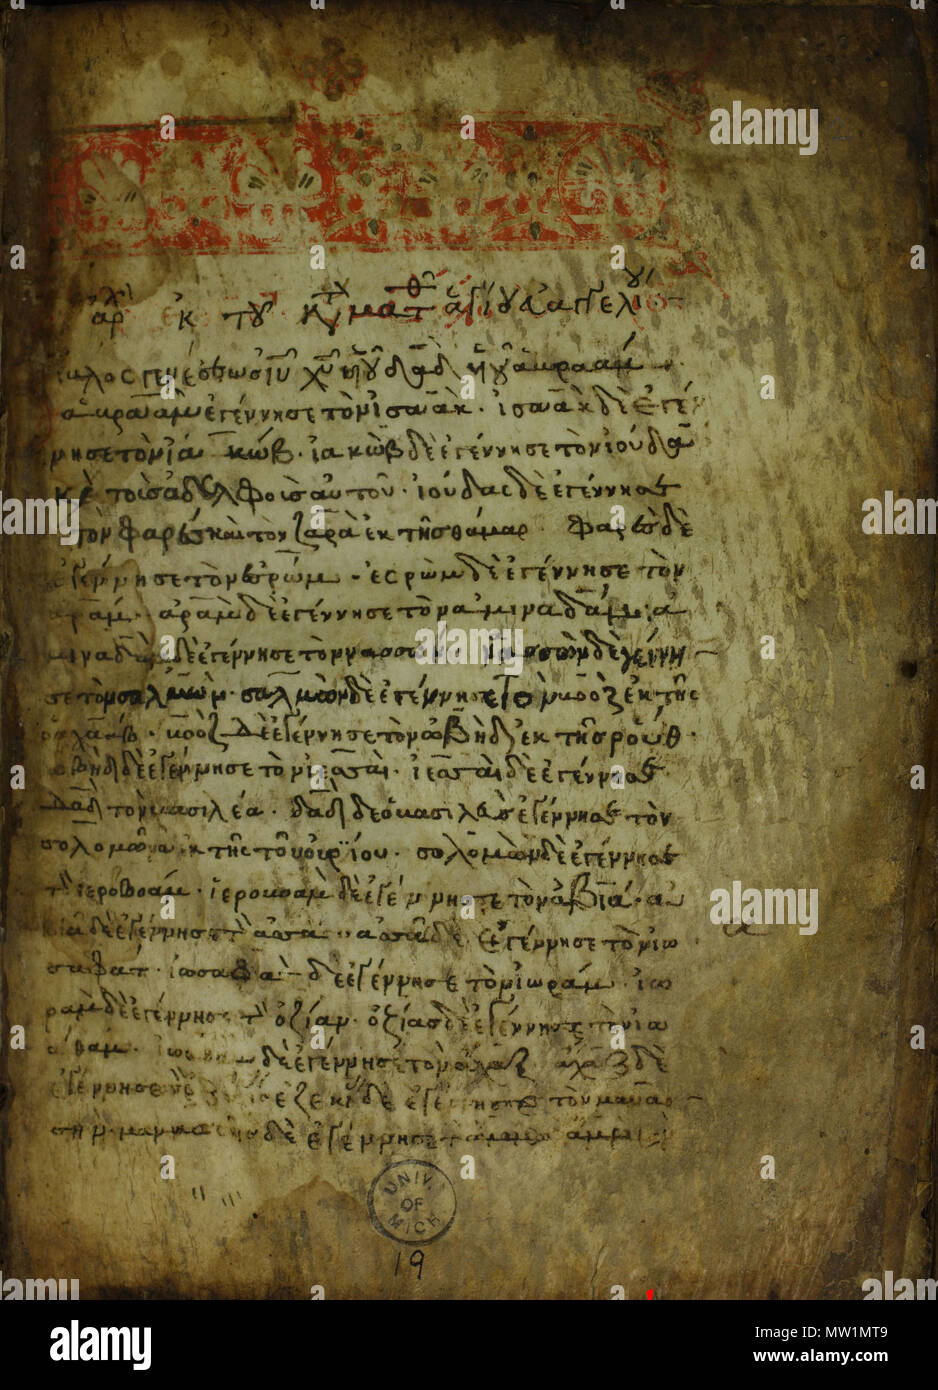 ἐκ τοῦ κατὰ ματθ ἁγίου εὐαγγελίου
βίβλος γενέσεως ιυ χυ υυ δαδ υυ ἀβραάμ
ἀβραὰμ ἐγέννησε τὸν ἰσαάκ · ἰσαὰκ δὲ ἐγέν
νησε τὸν ἰακώβ · ἰακὼβ δὲ ἐγέννησε τὸν ἰούδα
κὲ τοὺς ἀδελφοὺς αὐτοῦ · ἰούδας δὲ ἐγέννησε
τὸν φαρὲς καὶ τὸν ζαρὰ ἐκ τῆς θάμαρ · φαρὲς δὲ
ἐγέννησε τὸν ἐσρώμ · ἐσρὼμ δὲ ἐγέννησε τὸν
ἀράμ · ἀρὰμ δὲ ἐγέννησε τὸν ἀμιναδάμ · ἀ
μιναδὰμ δὲ ἐγέννησε τὸν ναασσών · ναασσὼν δὲ ἐγέννη
σε τὸν σαλμών · σαλμὼν δὲ ἐγέννησε τὸν βοὸζ ἐκ τῆς
ῥαχάβ · βοὸζ δὲ ἐγέννησε τὸν ὠβὴδ ἐκ τῆς ῥούθ ·
ὠβὴδ δὲ ἐγέννησε τὸν ἰεσσαί · ἰεσσαὶ δὲ ἐγέννησε
δαδ τὸν βασιλέα · δαδ δὲ ὁ βασιλεὺς ἐγέννησε τὸν
σολομῶνα ἐκ τῆς τοῦ οὐρίου · σολομὼν δὲ ἐγέννησε
τὸν ἱεροβοάμ · ἱεροβοὰμ δὲ ἐγέννησε τὸν ἀβιά · ἀ
βιὰ δὲ ἐγέννησε τὸν ἀσά · ἀσὰ δὲ ἐγέννησε τὸν ἰω
σαφάτ · ἰωσαφὰτ δὲ ἐγέννησε τὸν ἰωράμ · ἰω
ρὰμ δὲ ἐγέννησε τὸν ὀζίαν · ὀζίας δὲ ἐγέννησε τὸν ἰω
άθαμ · δὲ ἐγέννησε τὸν ἄχαζ · ἄχαζ δὲ
ἐγέννησε ἐζεκίας δὲ ἐγέννησε τὸν μανασ
σῆν · μανασσῆς δὲ ἐγέννησε
α
UNIV.
OF
MICH
19
alamy
alamy
Image ID: MW1MT9
www.alamy.com